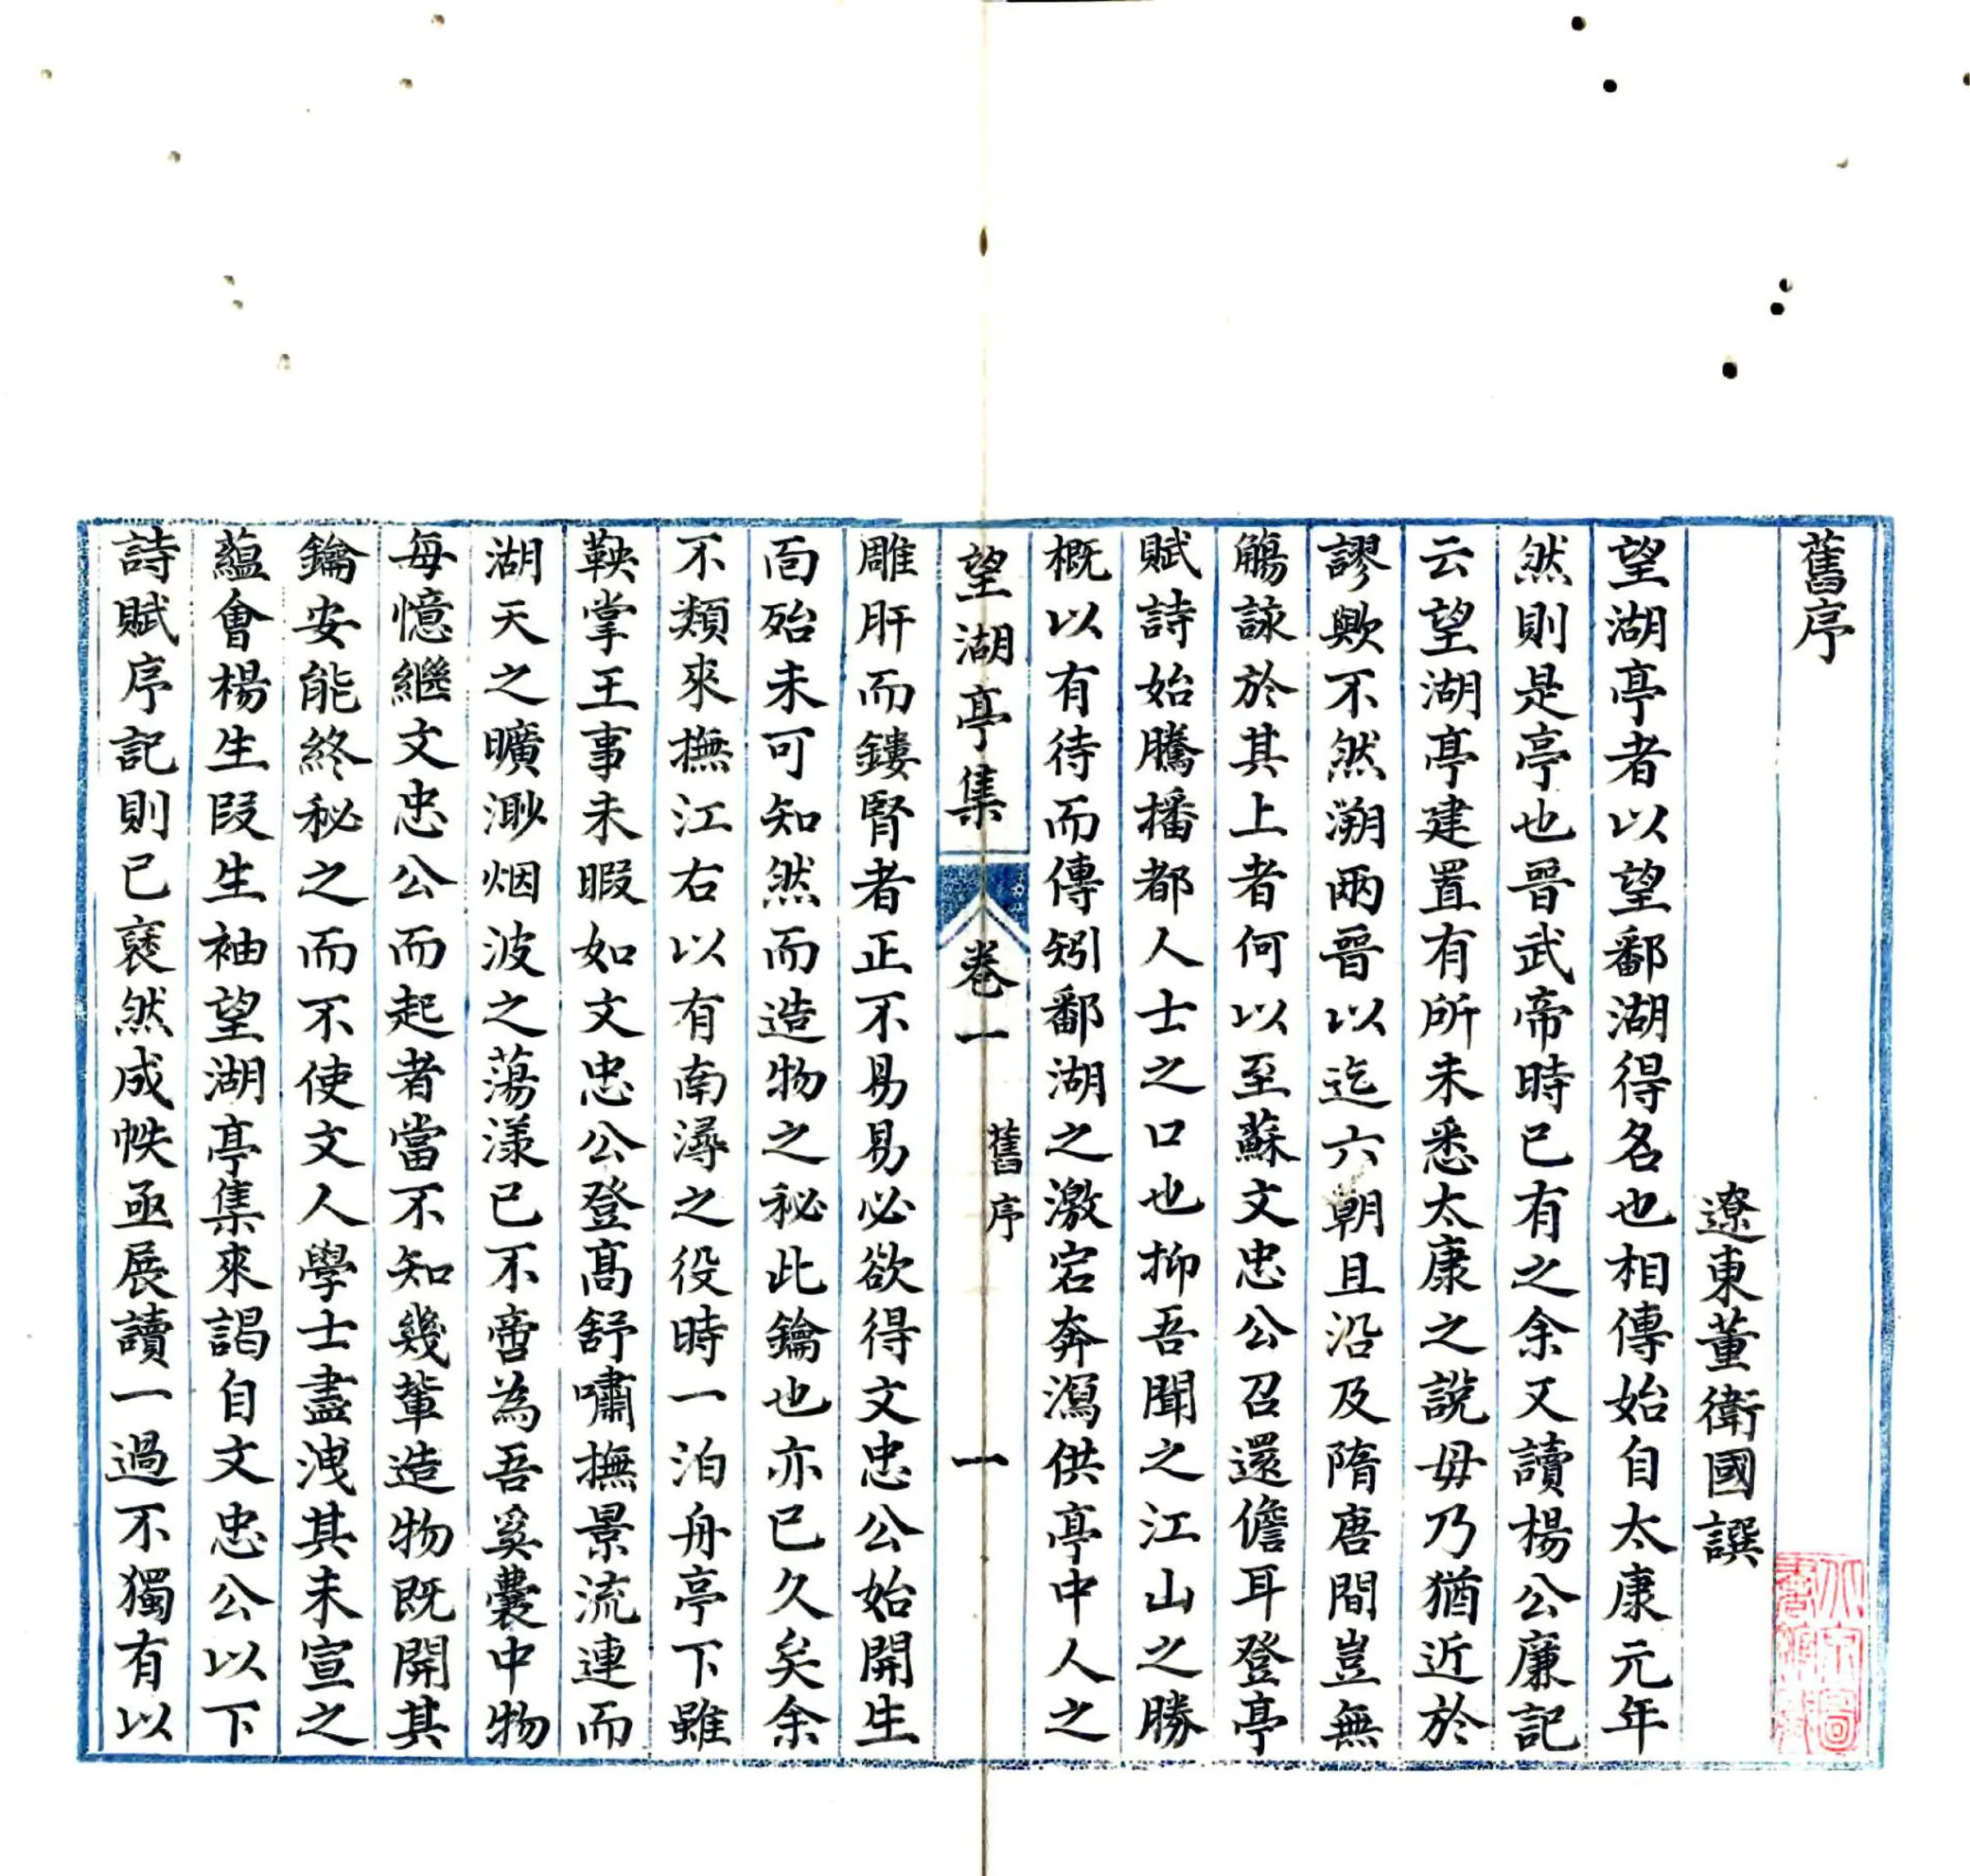 舊序
遼東董衛國譔
望湖亭者以望鄱湖得名也相傳始自太康元年
然則是亭也晉武帝時已有之余又讀楊公廉記
云望湖亭建置有所未悉太康之說毋乃猶近於
謬歟不然溯兩晉以迄六朝且沿及隋唐間豈無
觴詠於其上者何以至蘇文忠公召還儋耳登亭
賦詩始騰播都人士之口也抑吾聞之江山之勝
概以有待而傳矧鄱湖之激宕奔瀉供亭中人之
望湖亭集
卷一
舊序
一
雕肝而鏤腎者正不易易必欲得文忠公始開生
面殆未可知然而造物之秘此鑰也亦已久矣余
不類來撫江右以有南潯之役時一泊舟亭下雖
鞅掌王事未暇如文忠公登高舒嘯撫景流連而
湖天之曠渺烟波之蕩漾已不啻為吾奚囊中物
每憶繼文忠公而起者當不知幾輩造物既開其
鑰安能終秘之而不使文人學士盡洩其未宣之
蘊會楊生段生袖望湖亭集來謁自文忠公以下
詩賦序記則已裒然成帙亟展讀一過不獨有以